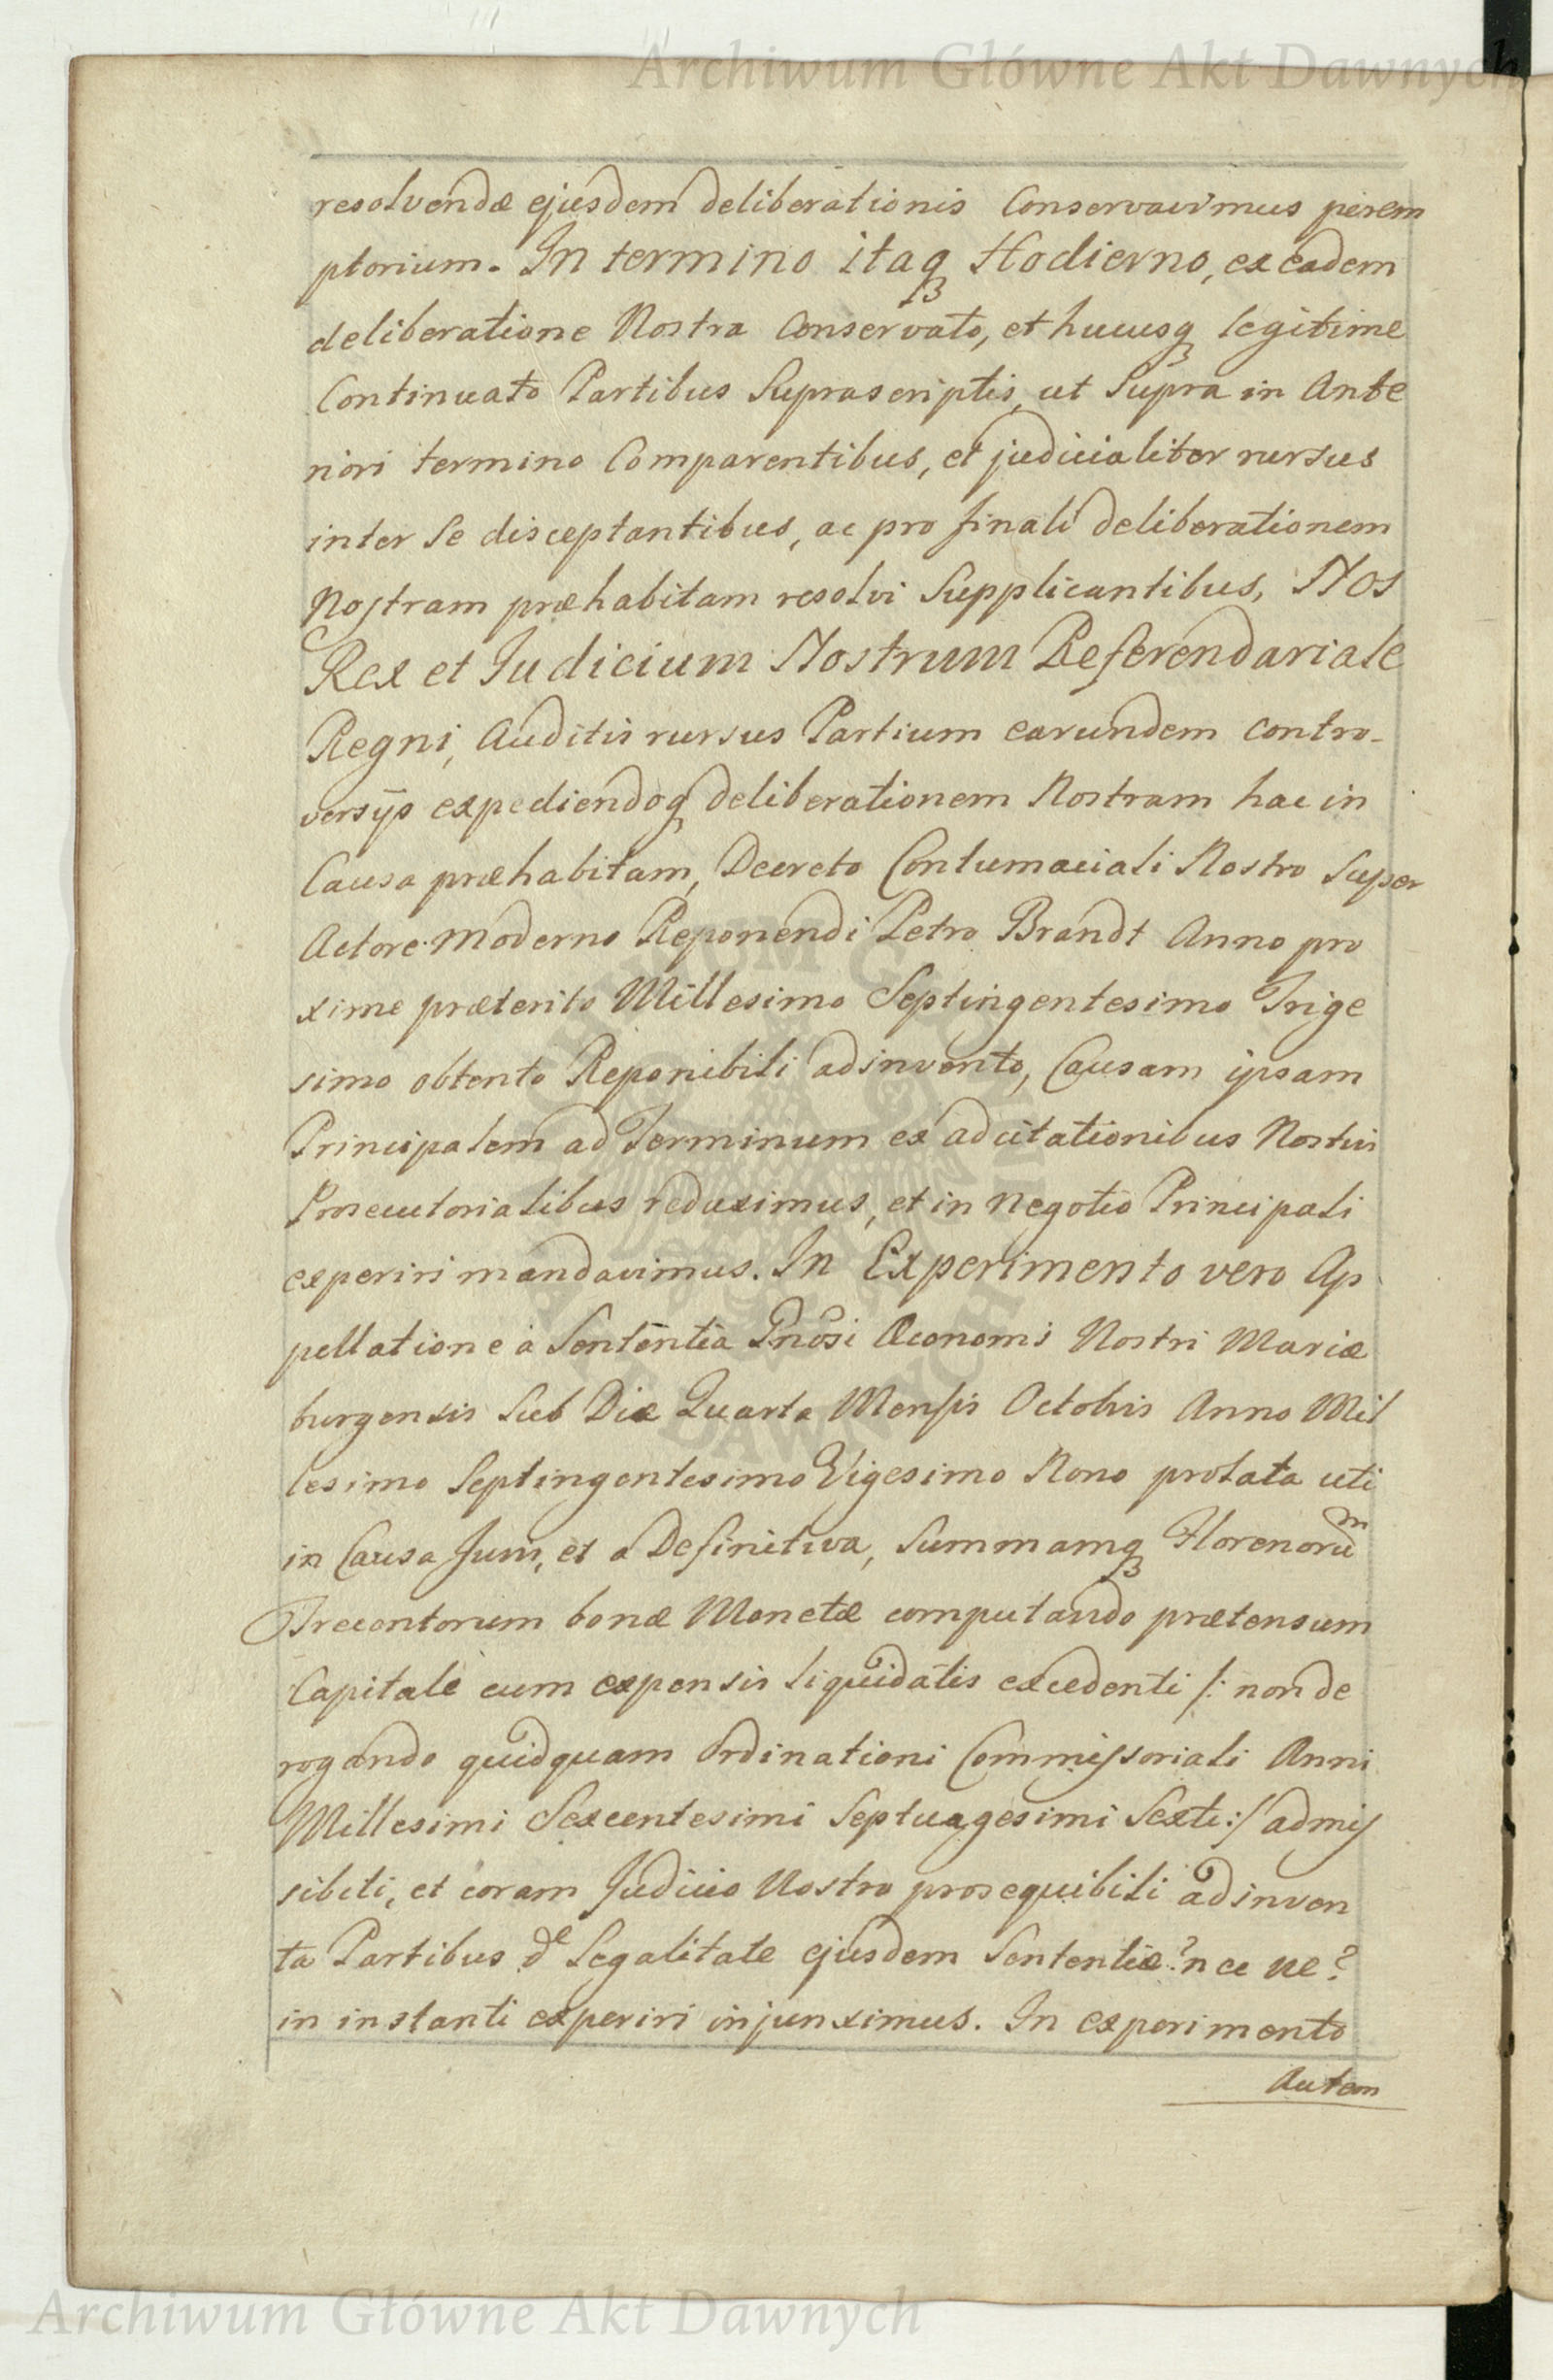 Archiwum Główne Akt Dawnych
resolvendæ ejusdem deliberationis Conservavimus perem
ptorium. In termino itaq Hodierno, ex eadem
deliberatione Nostra Conservato, et hucusq legitime
Continuato Partibus Suprascriptis, ut Supra in Ante
riori termino Comparentibus, et judicialiter rursus
inter se disceptantibus, ac pro finali deliberationem
Nostram præhabitam resolvi Supplicantibus, Nos
Rex et Judicium Nostrum Referendariale
Regni, Auditis rursus Partium earundem contro-
versÿs expediendoq deliberationem Nostram hac in
Causa præhabitam, Decreto Contumaciali Nostro Super
Actore Moderno Reponendi Petro Brandt Anno pro
xime præterito Millesimo Septingentesimo Trige
simo obtento Reponibili adinvento, Causam ipsam
Principalem ad Terminum ex adcitationibus Nostris
Prosecutorialibus reduximus, et in negotio Principali
experiri mandavimus. In Experimento vero Ap
pellatione à Sententia Gnosi Œconomi Nostri Mariæ
burgensis Sub Die Quarta Mensis Octobris Anno Mil
lesimo Septingentesimo Vigesimo Nono prolata uti
in Causa Juris, et a Definitiva, Summamq Florenorum
Trecentorum bonæ Monetæ computando prætensum
Capitale cum expensis liquidatis excedenti /: non de
rogando quidquam Ordinationi Commissoriali Anni
Millesimi Sexcentesimi Septuagesimi Sexti :/ admis
sibili, et coram Judicio Nostro prosequibili adinven
ta Partibus de Legalitate ejusdem Sententiæ? nec ne?
in instanti experiri injunximus. In experimento
Autem
Archiwum Główne Akt Dawnych